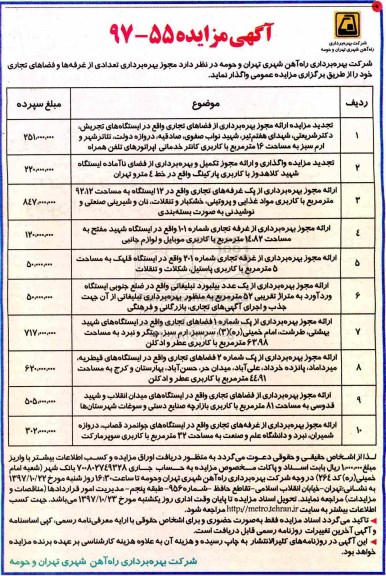 شرکت بهره‌برداری
راه‌آهن شهری تهران و حومه
آگهی مزایده ۵۵-۹۷
شرکت بهره‌برداری راه‌آهن شهری تهران و حومه در نظر دارد مجوز بهره‌برداری تعدادی از غرفه‌ها و فضاهای تجاری
خود را از طریق برگزاری مزایده عمومی واگذار نماید.
ردیف موضوع مبلغ سپرده
۱ تجدید مزایده ارائه مجوز بهره‌برداری از فضاهای تجاری واقع در ایستگاه‌های تجریش،
دکترشریعتی، شهدای هفتم‌تیر، شهید نواب صفوی، صادقیه، دروازه دولت، تئاترشهر و
ارم سبز به مساحت ۱۶ مترمربع با کاربری کانتر خدماتی اپراتورهای تلفن همراه ۲۵۱,۰۰۰,۰۰۰
۲ تجدید مزایده واگذاری و ارائه مجوز تکمیل و بهره‌برداری از فضای ناآماده ایستگاه
شهید کلاهدوز با کاربری پارکینگ واقع در خط ۴ مترو تهران ۲۲۰,۰۰۰,۰۰۰
۳ ارائه مجوز بهره‌برداری از پک غرفه‌های تجاری واقع در ۱۲ ایستگاه به مساحت ۹۲.۱۲
مترمربع با کاربری مواد غذایی و پروتئینی، خشکبار و تنقلات، نان و شیرینی صنعتی و
نوشیدنی به صورت بسته‌بندی ۸۴۷,۰۰۰,۰۰۰
۴ ارائه مجوز بهره‌برداری از غرفه تجاری شماره ۱۰۱ واقع در ایستگاه شهید مفتح به
مساحت ۱۴.۸۲ مترمربع با کاربری موبایل و لوازم جانبی ۱۲۰,۰۰۰,۰۰۰
۵ ارائه مجوز بهره‌برداری از غرفه تجاری شماره ۲۰۱ واقع در ایستگاه قلهک به مساحت
۵ مترمربع با کاربری پاستیل، شکلات و تنقلات ۵۰,۰۰۰,۰۰۰
۶ ارائه مجوز بهره‌برداری از یک عدد بیلبورد تبلیغاتی واقع در ضلع جنوبی ایستگاه
وردآورد به متراژ تقریبی ۵۲ مترمربع به منظور بهره‌برداری تبلیغاتی از آن جهت
جذب و اجرای آگهی‌های تجاری، بازرگانی و فرهنگی ۵۰,۰۰۰,۰۰۰
۷ ارائه مجوز بهره‌برداری از پک شماره ۱ فضاهای تجاری واقع در ایستگاه‌های شهید
بهشتی، طرشت، امام خمینی(ره)(۳)، سرسبز، ارم سبز، چیتگر و نبرد به مساحت
۶۳.۹۸ مترمربع با کاربری عطر و ادکلن ۷۱۷,۰۰۰,۰۰۰
۸ ارائه مجوز بهره‌برداری از پک شماره ۲ فضاهای تجاری واقع در ایستگاه‌های قیطریه،
میرداماد، پانزده خرداد، علی‌آباد، میدان حر، حسن‌آباد، بهارستان و کرج به مساحت
۴۴.۹۱ مترمربع با کاربری عطر و ادکلن ۶۲۰,۰۰۰,۰۰۰
۹ ارائه مجوز بهره‌برداری از فضاهای تجاری واقع در ایستگاه‌های میدان انقلاب و شهید
قدوسی به مساحت ۸۱ مترمربع با کاربری بازارچه صنایع دستی و سوغات شهرستان‌ها ۵۰۵,۰۰۰,۰۰۰
۱۰ ارائه مجوز بهره‌برداری از غرفه‌های تجاری واقع در ایستگاه‌های جوانمرد قصاب، دروازه
شمیران، نبرد و دانشگاه علم و صنعت به مساحت ۳۲ مترمربع با کاربری سوپرمارکت ۳۰۲,۰۰۰,۰۰۰
لذا از اشخاص حقیقی و حقوقی دعوت می‌گردد به منظور دریافت اوراق مزایده و کسب اطلاعات بیشتر با واریز
۱,۰۰۰,۰۰۰ ریال بابت اسناد و پاکات مخصوص مزایده به حساب جاری ۷۰۰۸۰۲۷۴۹۳۲۸ بانک شهر (شعبه امام
خمینی(ره) کد۲۶۴) در وجه شرکت بهره‌برداری راه‌آهن شهری تهران وحومه تا ساعت۱۶:۳۰ روز شنبه مورخ ۱۳۹۷/۱۰/۲۲
به نشانی:تهران-خیابان انقلاب اسلامی-تقاطع حافظ-شماره۹۵۶-طبقه پنجم-مدیریت امور قراردادها (مناقصات و
مزایدات) مراجعه نمایند. تحویل اسناد مزایده تا پایان وقت اداری روز یکشنبه مورخ ۱۳۹۷/۱۰/۲۳ می‌باشد. جهت کسب
اطلاعات بیشتر به سایت http://metro.tehran.ir مراجعه شود.
تاکید می‌گردد اسناد مزایده فقط به‌صورت حضوری و برای اشخاص حقوقی با ارایه معرفی‌نامه رسمی، کپی اساسنامه
و آگهی آخرین تغییرات روزنامه رسمی قابل دریافت است.
این آگهی در روزنامه‌های کثیرالانتشار به چاپ رسیده و هزینه آن به علاوه هزینه کارشناسی بر عهده برنده مزایده
خواهد بود.
شرکت بهره‌برداری راه‌آهن شهری تهران و حومه